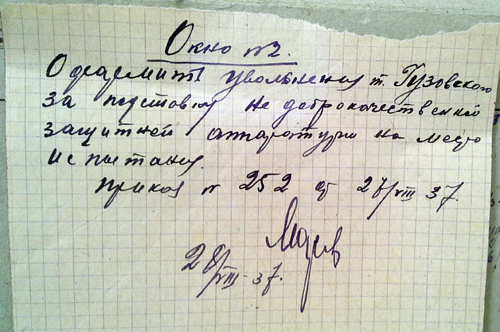 Окно №2.
Оформить увольнения т. Гузовского
за подставку не доброкачественной
защитной аппаратуры на место
испытания.
Приказ № 252 от 27/VIII 37.
28/VIII-37.